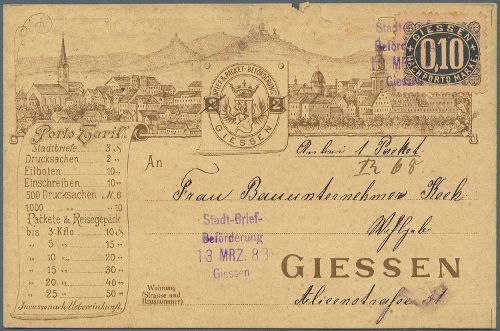 Stadt-Brief-
Beförderung
13 MRZ. 83
Giessen
GIESSEN
0,10
NACHPORTO MARKE
BRIEF & PACKET-BEFÖRDERUNG
2 2
GIESSEN
Porto Tarif.
Stadtbriefe 3 ₰
Drucksachen 2 „
Eilboten 10 „
Einschreiben 10 „
500 Drucksachen M. 6
1000 „ „ 10
Packete & Reisegepäck
bis 3 Kilo 10 ₰
„ 5 „ 15 „
„ 10 „ 20 „
„ 15 „ 30 „
„ 20 „ 40 „
„ 25 „ 50 „
Incasso nach Uebereinkunft.
An
Anbei 1 Packet
68
Frau Bauunternehmer Keck
Wohlgeb
Stadt-Brief-
Beförderung
13 MRZ. 83
Giessen
Wohnung
(Strasse und
Hausnummer)
GIESSEN
Alicenstrasse 31